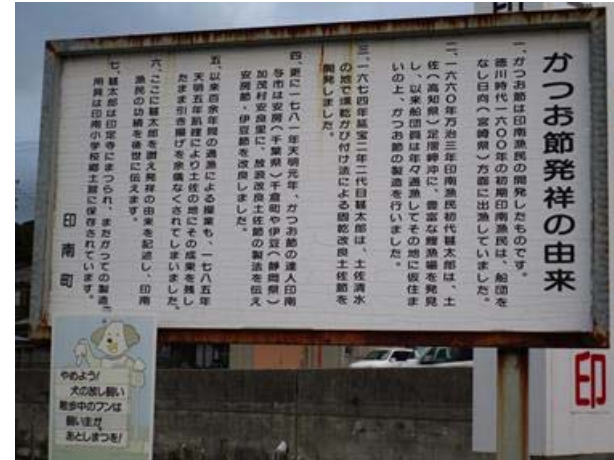 かつお節発祥の由来
一、かつお節は印南漁民の開発したものです。
徳川時代一六〇〇年の初期印南漁民は、船団を
なし日向(宮崎県)方面に出漁していました。
二、一六六〇年万治三年印南漁民初代甚太郎は、土
佐(高知県)足摺岬沖に、豊富な鰹漁場を発見
し、以来船団員は年々通漁してその地に仮住ま
いの上、かつお節の製造を行いました。
三、一六七四年延宝二年二代目甚太郎は、土佐清水
の地で燻乾かび付け法による固乾改良土佐節を
開発しました。
四、更に一七八一年天明元年、かつお節の達人印南
与市は安房(千葉県)千倉町や伊豆(静岡県)
加茂村安良里に、放浪改良土佐節の製法を伝え
安房節・伊豆節を改良しました。
五、以来百余年間の通漁による操業も、一七八五年
天明五年飢饉により土佐の地にその成果を残し
たまま引き揚げを余儀なくされてしまいました。
六、ここに甚太郎を讃え発祥の由来を記述し、印南
漁民の功績を後世に伝えます。
七、甚太郎は印定寺にまつられ、またかつての製造
用具は印南小学校郷土館に保存されています。
印南町
やめよう!
犬の放し飼い
散歩中のフンは
飼い主が
あとしまつを!
印
印